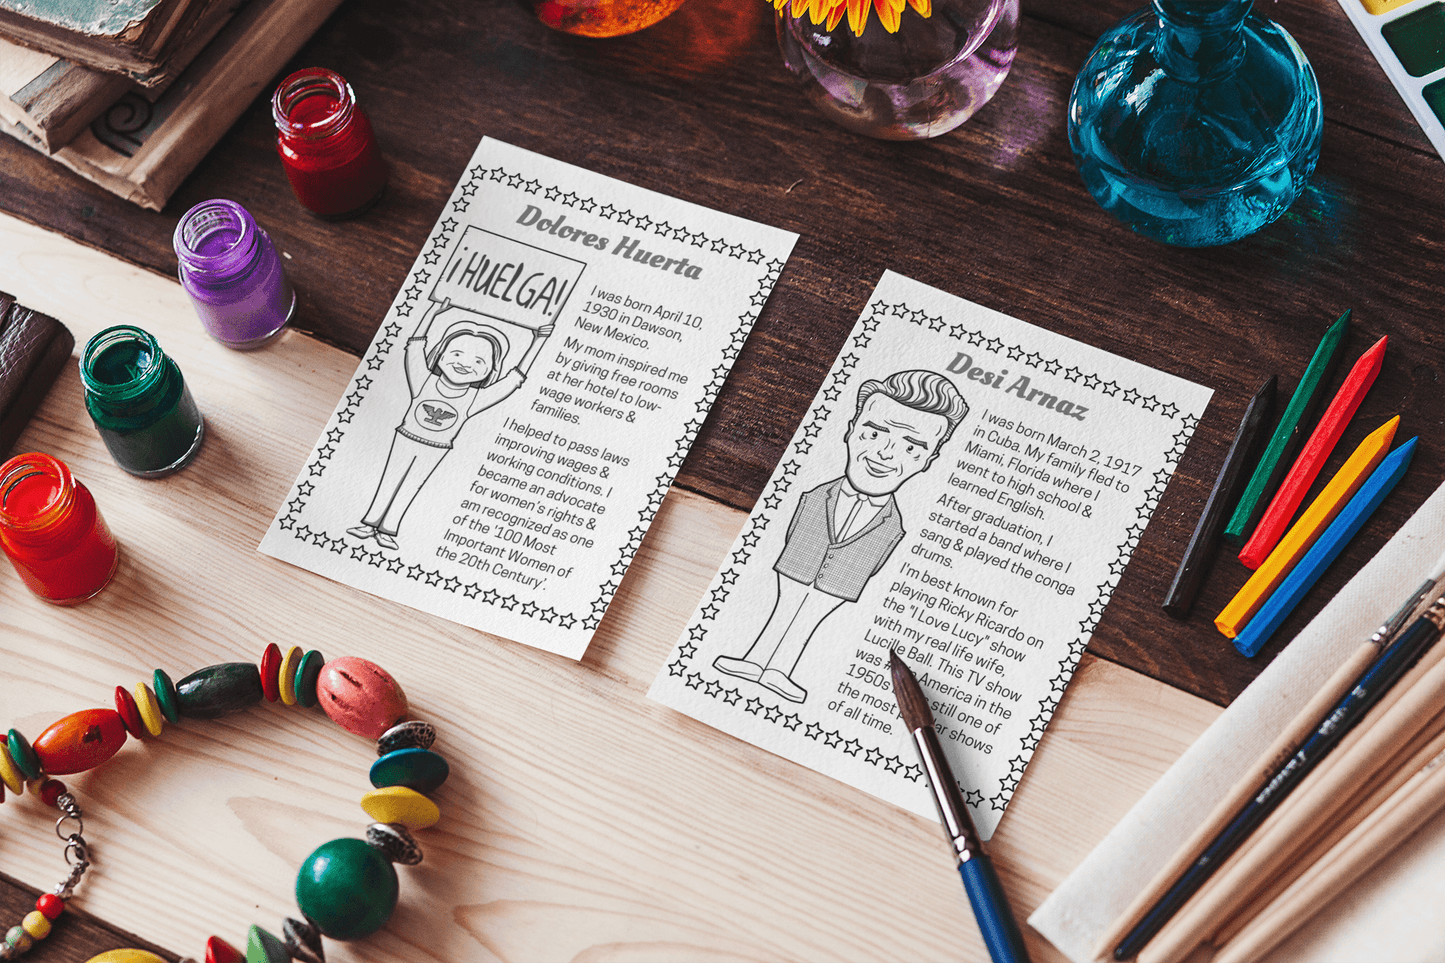 Dolores Huerta
¡HUELGA!
I was born April 10,
1930 in Dawson,
New Mexico.
My mom inspired me
by giving free rooms
at her hotel to low-
wage workers &
families.
I helped to pass laws
improving wages &
working conditions. I
became an advocate
for women's rights &
am recognized as one
of the '100 Most
Important Women of
the 20th Century'.
Desi Arnaz
I was born March 2, 1917
in Cuba. My family fled to
Miami, Florida where I
went to high school &
learned English.
After graduation, I
started a band where I
sang & played the conga
drums.
I'm best known for
playing Ricky Ricardo on
the "I Love Lucy" show
with my real life wife,
Lucille Ball. This TV show
was America in the
1950s still one of
the most shows
of all time.